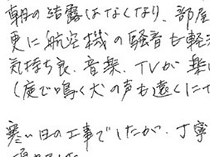 の結露はなくなり、部屋
更に航空機の騒音も軽
気持ち良、音楽、TVが楽
度で鳴く犬の声も遠くに
寒い日の工事でしたが、丁寧